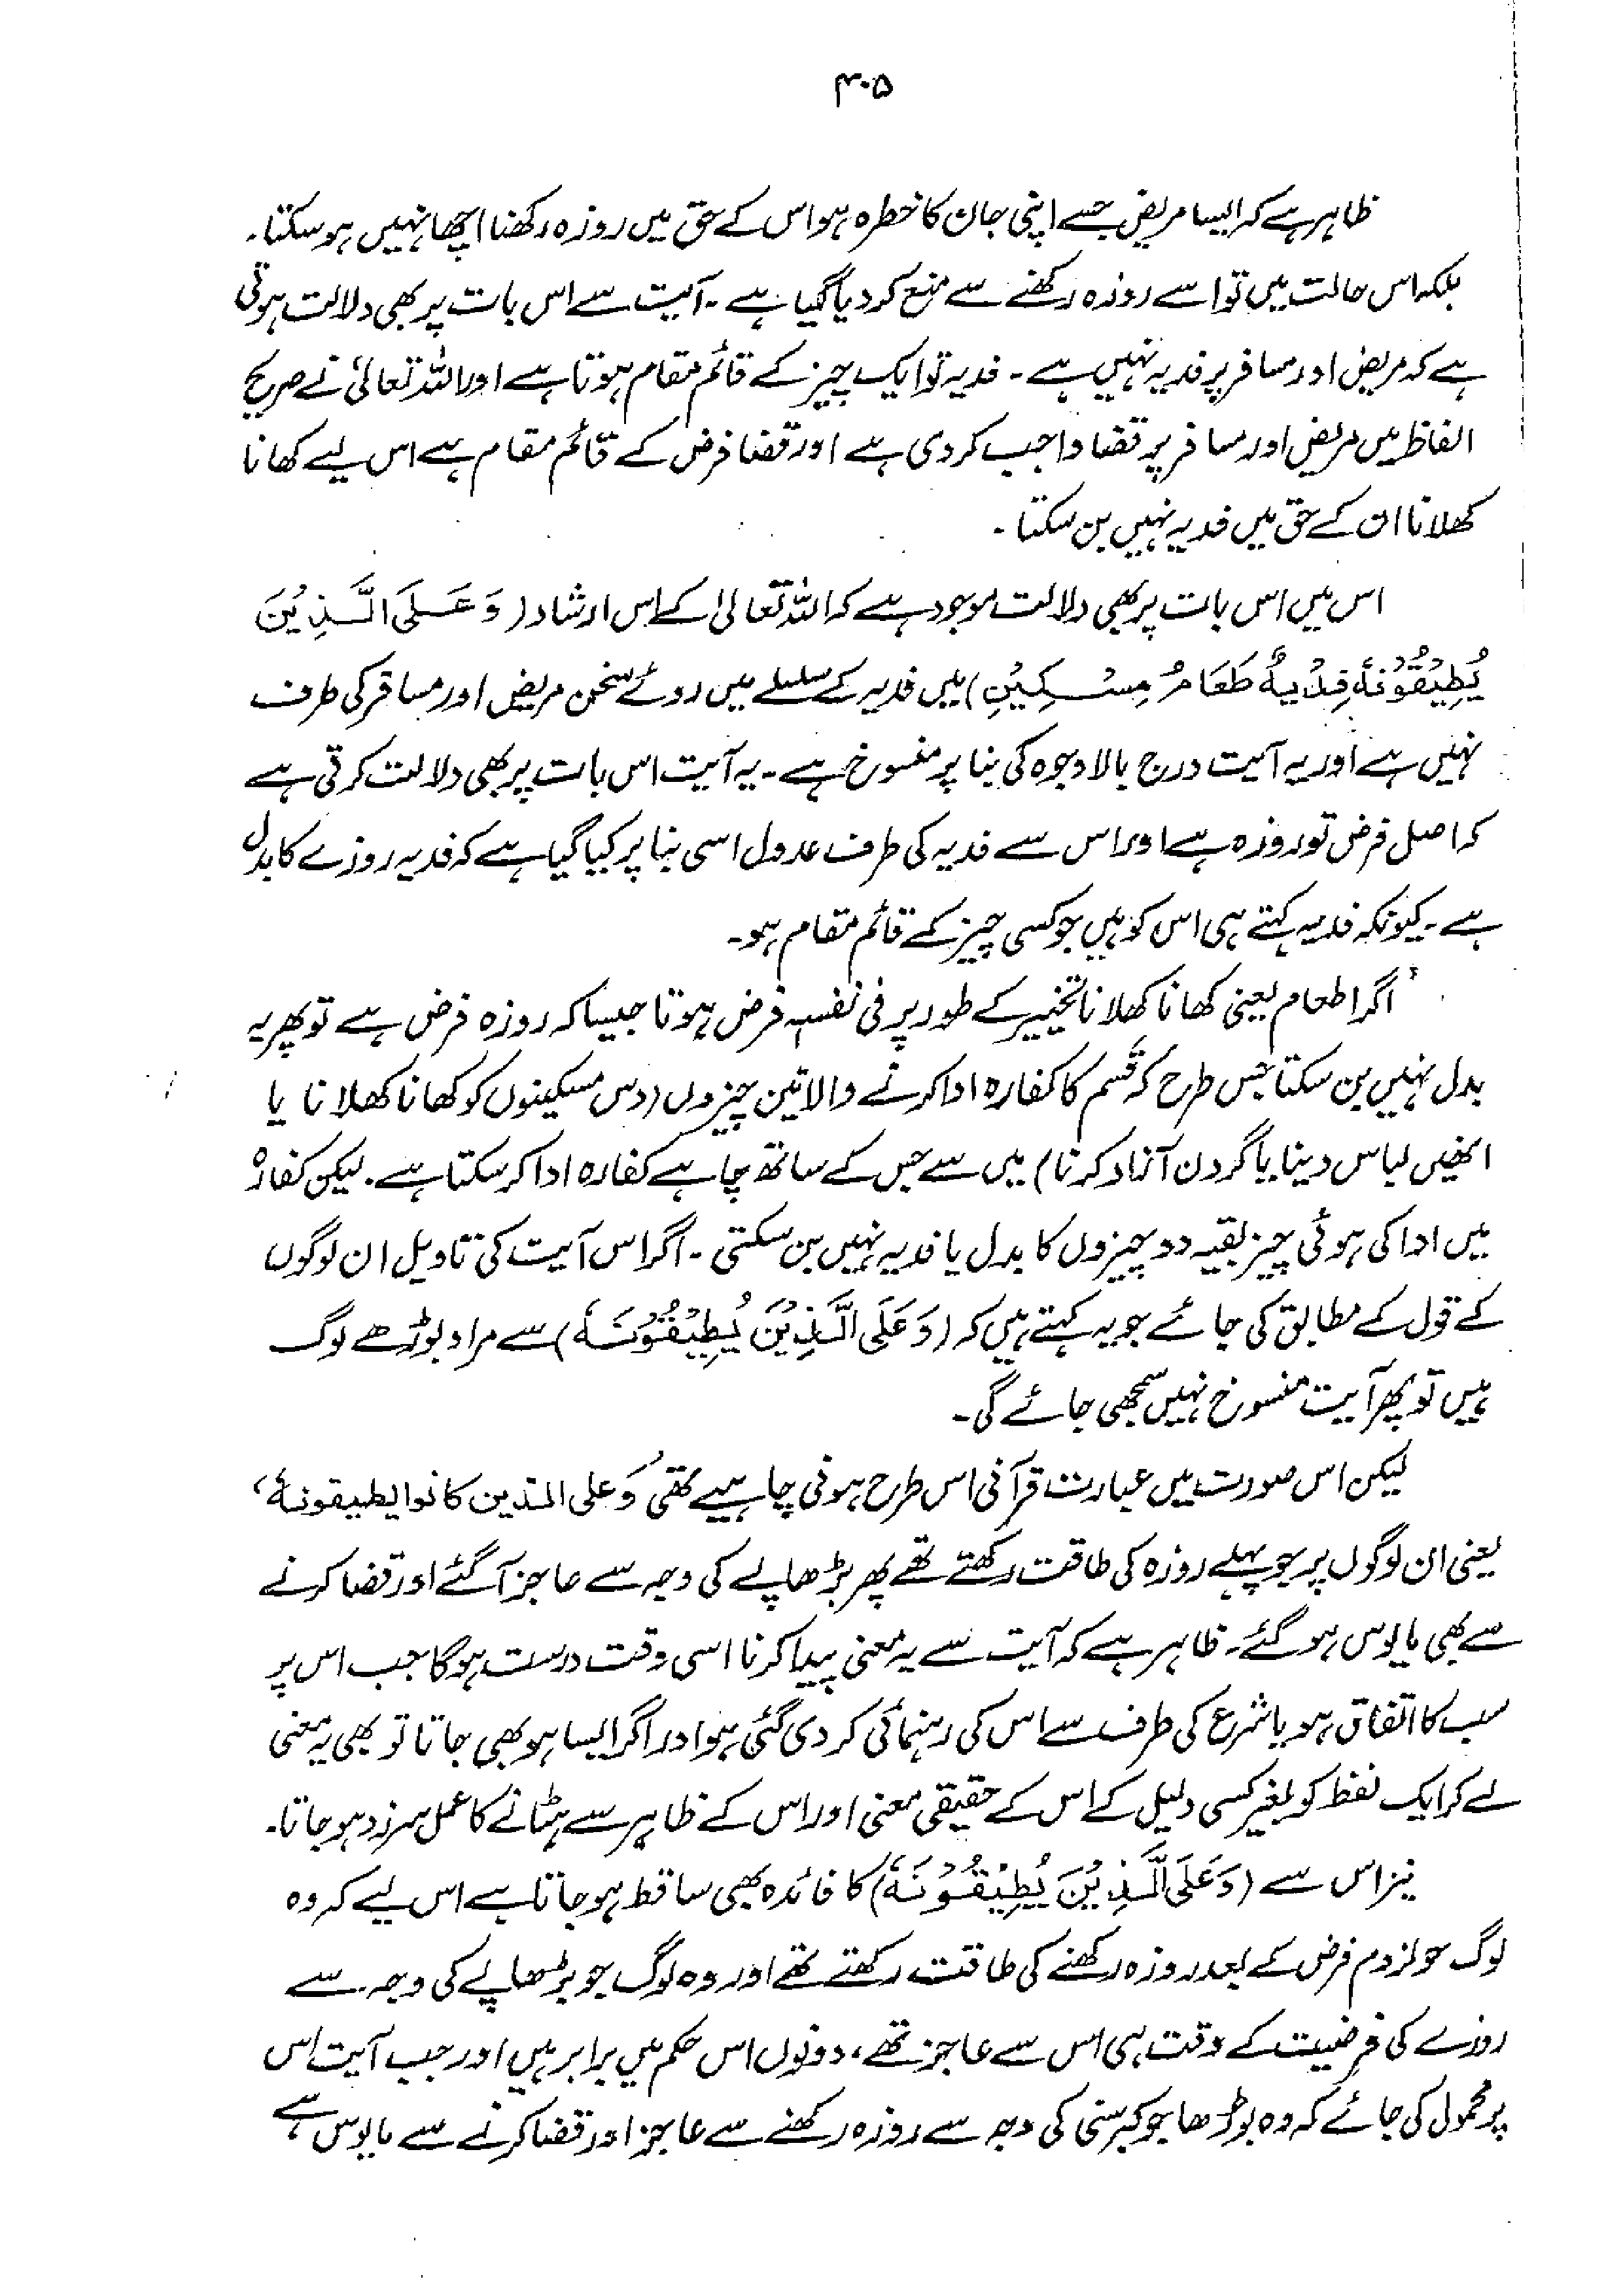 ۴۰۵
ظاہر ہے کہ ایسا مریض جسے اپنی جان کا خطرہ ہو اس کے حق میں روزہ رکھنا اچھا نہیں ہو سکتا۔
بلکہ اس حالت میں تو اسے روزہ رکھنے سے منع کر دیا گیا ہے۔ آیت سے اس بات پر بھی دلالت ہوتی
ہے کہ مریض اور مسافر پر فدیہ نہیں ہے۔ فدیہ تو ایک چیز کے قائم مقام ہوتا ہے اور اللہ تعالیٰ نے صریح
الفاظ میں مریض اور مسافر پر قضا واجب کر دی ہے اور قضا فرض کے قائم مقام ہے اس لیے کھانا
کھلانا ان کے حق میں فدیہ نہیں بن سکتا۔
اس میں اس بات پر بھی دلالت موجود ہے کہ اللہ تعالیٰ کے اس ارشاد (وَعَلَی الَّذِیْنَ
یُطِیْقُوْنَہٗ فِدْیَۃٌ طَعَامُ مِسْکِیْنٍ) میں فدیہ کے سلسلے میں روئے سخن مریض اور مسافر کی طرف
نہیں ہے اور یہ آیت درج بالا وجوہ کی بنا پر منسوخ ہے۔ یہ آیت اس بات پر بھی دلالت کرتی ہے
کہ اصل فرض تو روزہ ہے اور اس سے فدیہ کی طرف عدول اسی بنا پر کیا گیا ہے کہ فدیہ روزے کا بدل
ہے۔ کیونکہ فدیہ کہتے ہی اس کو ہیں جو کسی چیز کے قائم مقام ہو۔
اگر اطعام یعنی کھانا کھلانا تخییر کے طور پر فی نفسہٖ فرض ہوتا جیسا کہ روزہ فرض ہے تو پھر یہ
بدل نہیں بن سکتا جس طرح کہ قسم کا کفارہ ادا کرنے والا تین چیزوں (دس مسکینوں کو کھانا کھلانا یا
انھیں لباس دینا یا گردن آزاد کرنا) میں سے جس کے ساتھ چاہے کفارہ ادا کر سکتا ہے۔ لیکن کفارہ
میں ادا کی ہوئی چیز بقیہ دو چیزوں کا بدل یا فدیہ نہیں بن سکتی۔ اگر اس آیت کی تاویل ان لوگوں
کے قول کے مطابق کی جائے جو یہ کہتے ہیں کہ (وَعَلَی الَّذِیْنَ یُطِیْقُوْنَہٗ) سے مراد بوڑھے لوگ
ہیں تو پھر آیت منسوخ نہیں سمجھی جائے گی۔
لیکن اس صورت میں عبارت قرآنی اس طرح ہونی چاہیے تھی ’وَعلی الذین کانوا یطیقونہٗ‘
یعنی ان لوگوں پر جو پہلے روزہ کی طاقت رکھتے تھے پھر بڑھاپے کی وجہ سے عاجز آ گئے اور قضا کرنے
سے بھی مایوس ہو گئے۔ ظاہر ہے کہ آیت سے یہ معنی پیدا کرنا اسی وقت درست ہوگا جب اس پر
سب کا اتفاق ہو یا شرع کی طرف سے اس کی رہنمائی کر دی گئی ہو اور اگر ایسا ہو بھی جاتا تو بھی یہ معنی
لے کر ایک لفظ کو بغیر کسی دلیل کے اس کے حقیقی معنی اور اس کے ظاہر سے ہٹانے کا عمل سرزد ہو جاتا۔
نیز اس سے (وَعَلَی الَّذِیْنَ یُطِیْقُوْنَہٗ) کا فائدہ بھی ساقط ہو جاتا ہے اس لیے کہ وہ
لوگ جو لزوم فرض کے بعد روزہ رکھنے کی طاقت رکھتے تھے اور وہ لوگ جو بڑھاپے کی وجہ سے
روزے کی فرضیت کے وقت ہی اس سے عاجز تھے، دونوں اس حکم میں برابر ہیں اور جب آیت اس
پر محمول کی جائے کہ وہ بوڑھا جو کبر سنی کی وجہ سے روزہ رکھنے سے عاجز اور قضا کرنے سے مایوس ہے